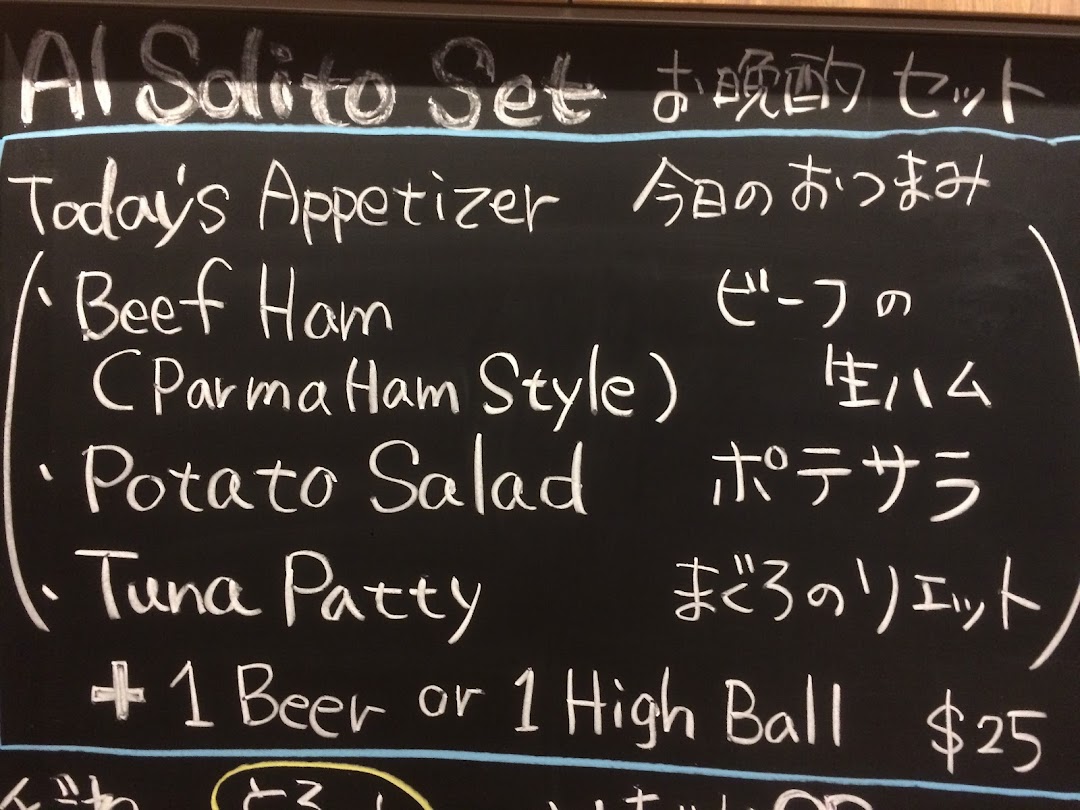 Al Solito Set お晩酌セット
Today's Appetizer 今日のおつまみ
・Beef Ham ビーフの
(Parma Ham Style) 生ハム
・Potato Salad ポテサラ
・Tuna Patty まぐろのリエット
+ 1 Beer or 1 High Ball $25